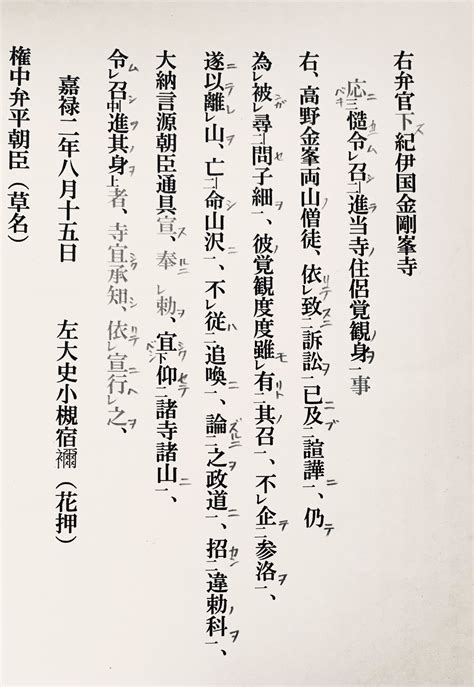 右弁官下紀伊国金剛峯寺
応三慥令レ召二進当寺住侶覚観身一事
右、高野金峯両山僧徒、依レ致二訴訟一已及二諠譁一、仍
為レ被レ尋二問子細一、彼覚観度度雖レ有二其召一、不レ企二参洛一、
遂以離レ山、亡二命山沢一、不レ従二追喚一、論二之政道一、招二違勅科一、
大納言源朝臣通具宣、奉レ勅、宜下仰二諸寺諸山一、
令レ召中進其身上者、寺宜承知、依レ宣行レ之、
嘉禄二年八月十五日　左大史小槻宿禰（花押）
権中弁平朝臣（草名）